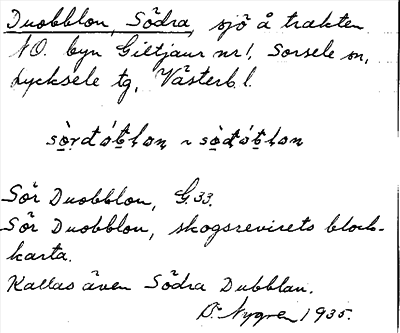 Duobblon, Södra, sjö å trakten
NO. byn Giltjaur nr 1, Sorsele sn,
Lycksele tg, Västerb. l.
sö̀rdób̥lon ~ sö̀dób̥lon
Sör Duobblon, G 33.
Sör Duobblon, skogsrevirets block-
karta.
Kallas även Södra Dubblan.
D. Nygren 1935.